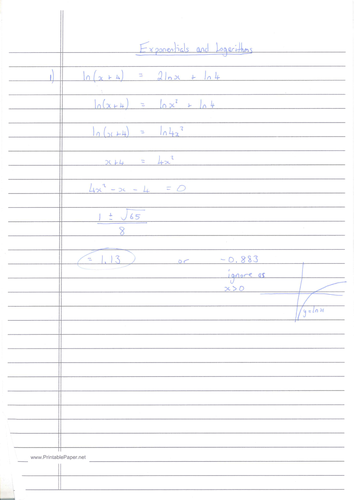 Exponentials and Logarithms
1) ln(x+4) = 2lnx + ln4
ln(x+4) = lnx² + ln4
ln(x+4) = ln4x²
x+4 = 4x²
4x² - x - 4 = 0
1 ± √65
8
= 1.13 or -0.883
ignore as
x>0
y=lnx
www.PrintablePaper.net